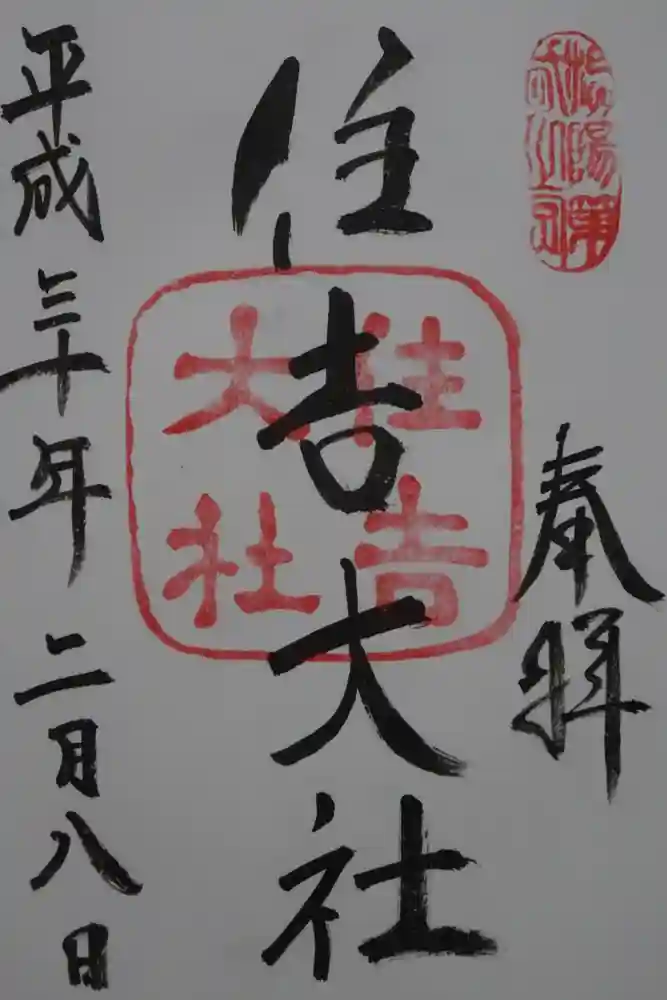 奉拝
住吉大社
住吉
大社
平成三十年二月八日